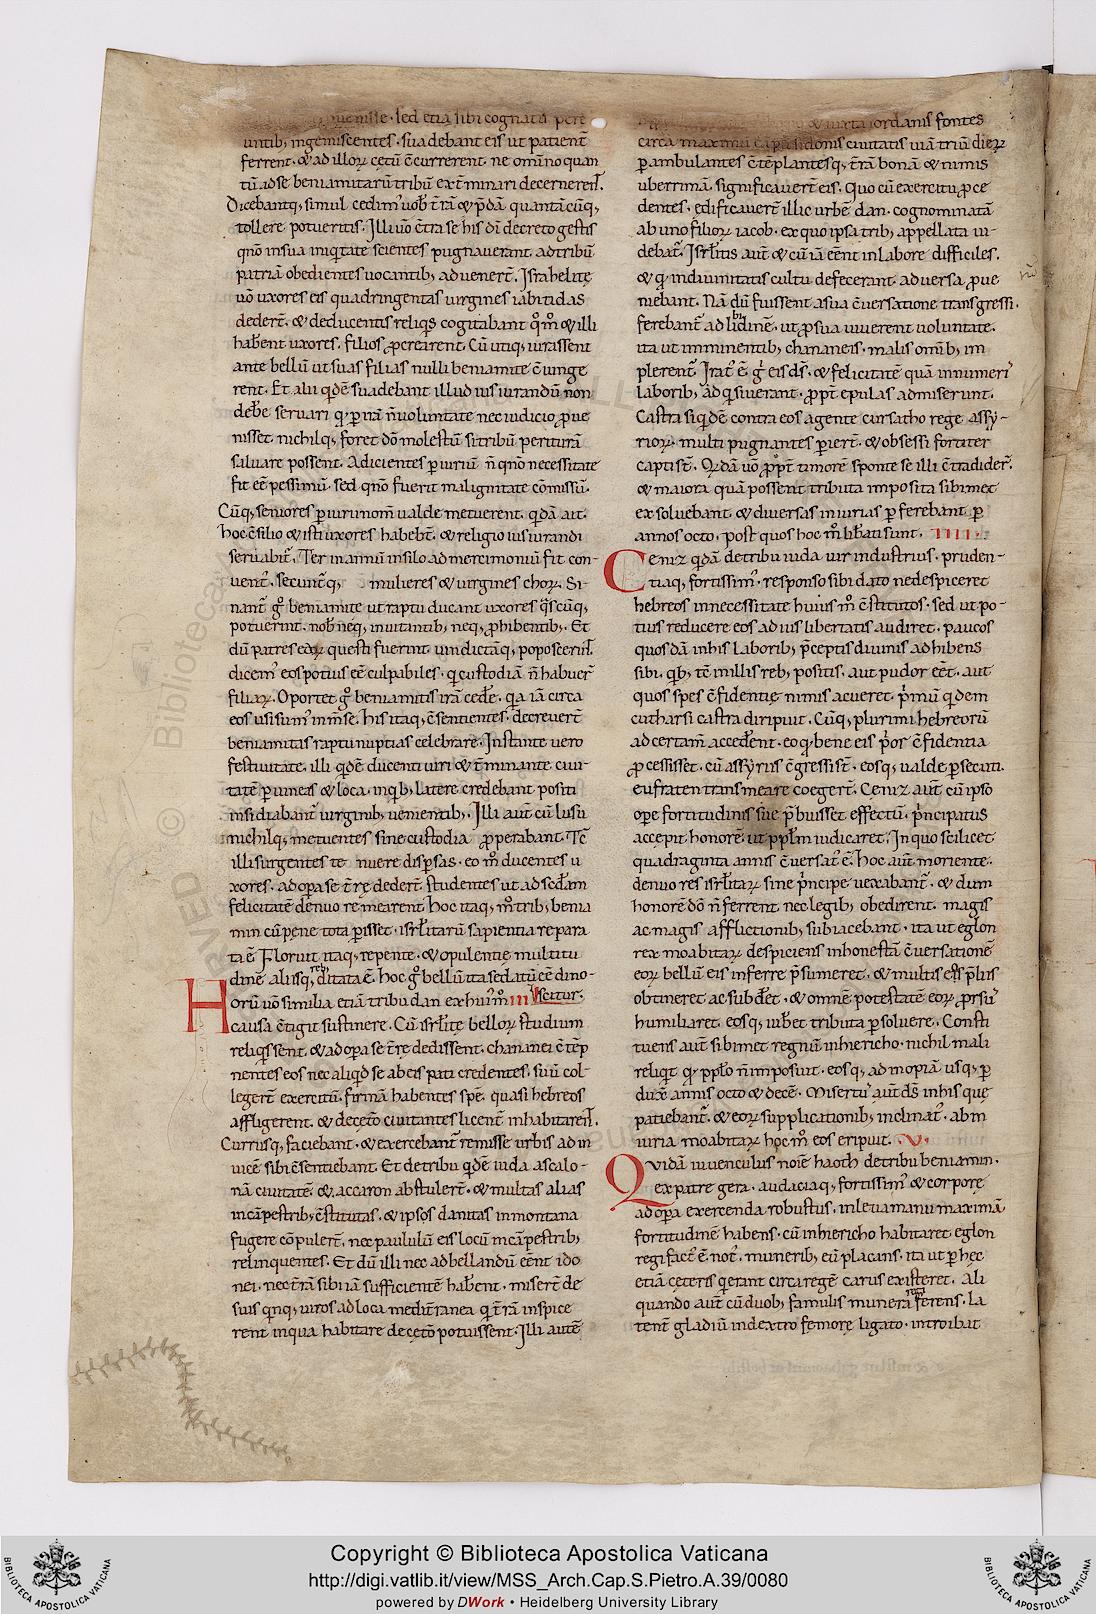 sed etiā sibi cognatis pere
untib; ingemiscentes. suadebant eis ut patient̄
ferrent. & ad illoꝝ cetū c̄currerent. ne omīno quan
tū ad se beniamitarū tribū ext̄minari decernerent̄.
Dicebantq; simul cedim' uob̄ t̄rā & p̄dā quantācūq;
tollere potueritis. Illi uō c̄tra se his dī decreto gestis
qn̄o in sua iniq̇tate scientes pugnauerant. ad tribū
patriā obedientes uocantib; aduenert̄. Israhelitę
uō uxores eis quadringentas uirgines iabitidas
dedert̄. & de ducentis reliq̇s cogitabant q̄m̄ & illi
hab̄ent uxores. filios ꝓcrearent. Cū utiq; iurassent
ante bellū ut suas filias nulli beniamitę c̄iunge
rent. Et alii qdē suadebant illud ius iurandū non
deb̄e seruari qꝛ p irā n̄ uoluntate nec iudicio ꝓue
nisset. nichilq; foret dō molestū si tribū periturā
saluare possent. Adicientes piuriū n̄ qn̄o necessitate
fit eē pessimū. sed qn̄o fuerit malignitate cōmissū.
Cūq; seniores piurii nom̄ ualde metuerent. qdā ait.
hoc c̄silio & isti uxores habebt̄. & religio iusiurandi
seruabit̄. Ter in annū in silo ad mercimoniū fit con-
uent'. secunt̄q; mulieres & uirgines choꝝ. Si-
nant̄ g̊ beniamitę ut raptu ducant uxores q̇scūq;
potuerint. nob̄ neq; inuitantib; neq; ꝓhibentib;. Et
dū patres eaꝝ questi fuerint uindictāq; poposcerint̄.
dicem' eos potius eē culpabiles. q custodiā n̄ habuert̄
filiaꝝ. Oportet g̊ beniamitis irā cedē. qa iā circa
eos usi sum' inm̄se. His itaq; c̄sentientes. decreuert̄
beniamitas raptu nuptias celebrare. Instante uero
festiuitate. illi qdē ducenti uiri & t̄minante ciui-
tatē p uineas & loca. in qb; latere credebant positi
insidiabant̄ uirginib; uenientib;. Illi aut̄ cū lusu
nichilq; metuentes sine custodia ꝓperabant. Tc̄
illi surgentes te nuere disp̄sas. eo m̄ ducentes u
xores. ad opa se t̄rę dedert̄. studentes ut ad scđam
felicitatē denuo remearent. Hoc itaq; m̊ trib; benia
min cū pene tota pisset. isrl̄itarū sapientia repara
ta ē. Floruit itaq; repente. & opulentię multitu
dinē aliisq; reb; ditata ē. Hoc g̊ bellū ita sedatū eē dino-
scitur.
Horū uō similia etiā tribu dan ex hui'm̊ III
causa c̄tigit sustinere. Cū isrl̄itę belloꝝ studium
reliq̇ssent. & ad opa se t̄rę dedissent. chananei c̄tēp
nentes eos nec aliqd se ab eis pati credentes. suū col-
legert̄ exercitū. firmā habentes spē. quasi hebreos
affligerent. & decet̄o ciuitantes licent̄ inhabitarent̄.
Currusq; faciebant. & exercebant̄ remisse. urbis ad in
uicē sibi c̄sentiebant. Et de tribu qdē iuda ascalo-
nā ciuitatē & accaron abstulert̄. & multas alias
in cāpestrib; c̄stitutas. & ipsos danitas in montana
fugere cōpulert̄. nec paululū eis locū in cāpestrib;
relinquentes. Et dū illi nec ad bellandū eēnt ido
nei. nec t̄rā sibi iā sufficientē hab̄ent. misert̄ de
suis qnq; uiros ad loca medit̄ranea. q t̄rā inspice
rent in qua habitare decet̄o potuissent. Illi autē
& iuxta iordanis fontes
circa maximū cāpū sidonis ciuitatis uiā triū dieꝝ
pambulantes c̄tēplantesq; t̄rā bonā & nimis
uberrimā. significauert̄ eis. Quo cū exercitu ꝓce
dentes. edificauert̄ illic urbē dan. cognominatā
ab uno filioꝝ iacob. ex quo ipsa trib; appellata ui-
debat̄. Isrl̄itis aut̄ & cū iā eēnt in labore difficiles.
& q in diuinitatis cultu defecerant. aduersa ꝓue
niebant. Nā dū fuissent a sua c̄uersatione transgressi.
ferebant̄ ad libidinē. ut ꝓ sua uiuerent uoluntate.
ita ut imminentib; chananeis. malis om̄ib; im
plerent̄. Irat' ē g̊ eis d̄s. & felicitatē quā innumeris
laborib; adqsiuerant. ꝓpt̄ epulas admiserunt.
Castra siqdē contra eos agente cursatho rege assy-
rioꝝ. multi pugnantes pierт̄. & obsessi fortiter
capti st̄. Qdā uō ꝓpt̄ timorē sponte se illi c̄tradidert̄.
& maiora quā possent tributa imposita sibimet
exsoluebant. & diuersas iniurias pferebant p
annos octo. post quos hoc m̊ lib̄ati sunt. IIII.
Cenez qdā de tribu iuda uir industrius. pruden-
tiaq; fortissim'. responso sibi dato ne despiceret
hebreos in necessitate huius m̊ c̄stitutos. sed ut po-
tius reducere eos ad ius libertatis audiret. paucos
quosdā in his laborib; p̄ceptis diuinis adhibens
sibi. qb; tē in illis reb; positis. aut pudor eēt. aut
quos spes c̄fidentię nimis acueret. p̄mū qdem
cutharsi castra diripuit. Cūq; plurimi hebreorū
ad certam̄ accedēent. eo q bene eis p̄or c̄fidentia
ꝓcessisset. cū assyriis c̄gressi st̄. eosq; ualde psecuti.
eufraten transmeare coegert̄. Cenez aut̄ cū ipso
ope fortitudinis suę p̄buisset effectū. p̄ncipatus
accepit honorē. ut pplm̄ iudicaret. In quo scilicet
quadraginta annis c̄uersat' ē. Hoc aut̄ moriente.
denuo res isrl̄itaꝝ sine p̄ncipe uexabant̄. & dum
honorē dō n̄ ferrent. nec legib; obedirent. magis
ac magis afflictionib; subiacebant. ita ut eglon
rex moabitaꝝ despiciens inhonestā c̄uersationē
eoꝝ bellū eis inferre p̄sumeret. & multis eos p̄lus
obtineret ac subdēt. & omnē potestatē eoꝝ ꝓrsus
humiliaret. eosq; iub̄et tributa psoluere. Consti
tuens aut̄ sibimet regnū in hiericho. nichil mali
reliqt qꝛ pplō n̄ imposuit. eosq; ad inopiā usq; p
duxit annis octo & decē. Misertus aut̄ d̄s in his que
patiebant̄. & eoꝝ supplicationib; inclinat'. ab in
iuria moabitaꝝ hoc m̊ eos eripuit. V.
Quidā iuuenculus noīe haoth de tribu beniamin.
ex patre gera. audaciaq; fortissim' & corpore
ad opa exercenda robustus. in leua manu maximā
fortitudinē habens. cū in hiericho habitaret. eglon
regi fact' ē not'. munerib; eū placans. ita ut p hęc
etiā ceteris qerant circa regē carus existeret. Ali
quando aut̄ cū duob; famulis munera regi ferens. la
tent̄ gladiū in dextro femore ligato. introibat
Copyright © Biblioteca Apostolica Vaticana
http://digi.vatlib.it/view/MSS_Arch.Cap.S.Pietro.A.39/0080
powered by DWork • Heidelberg University Library